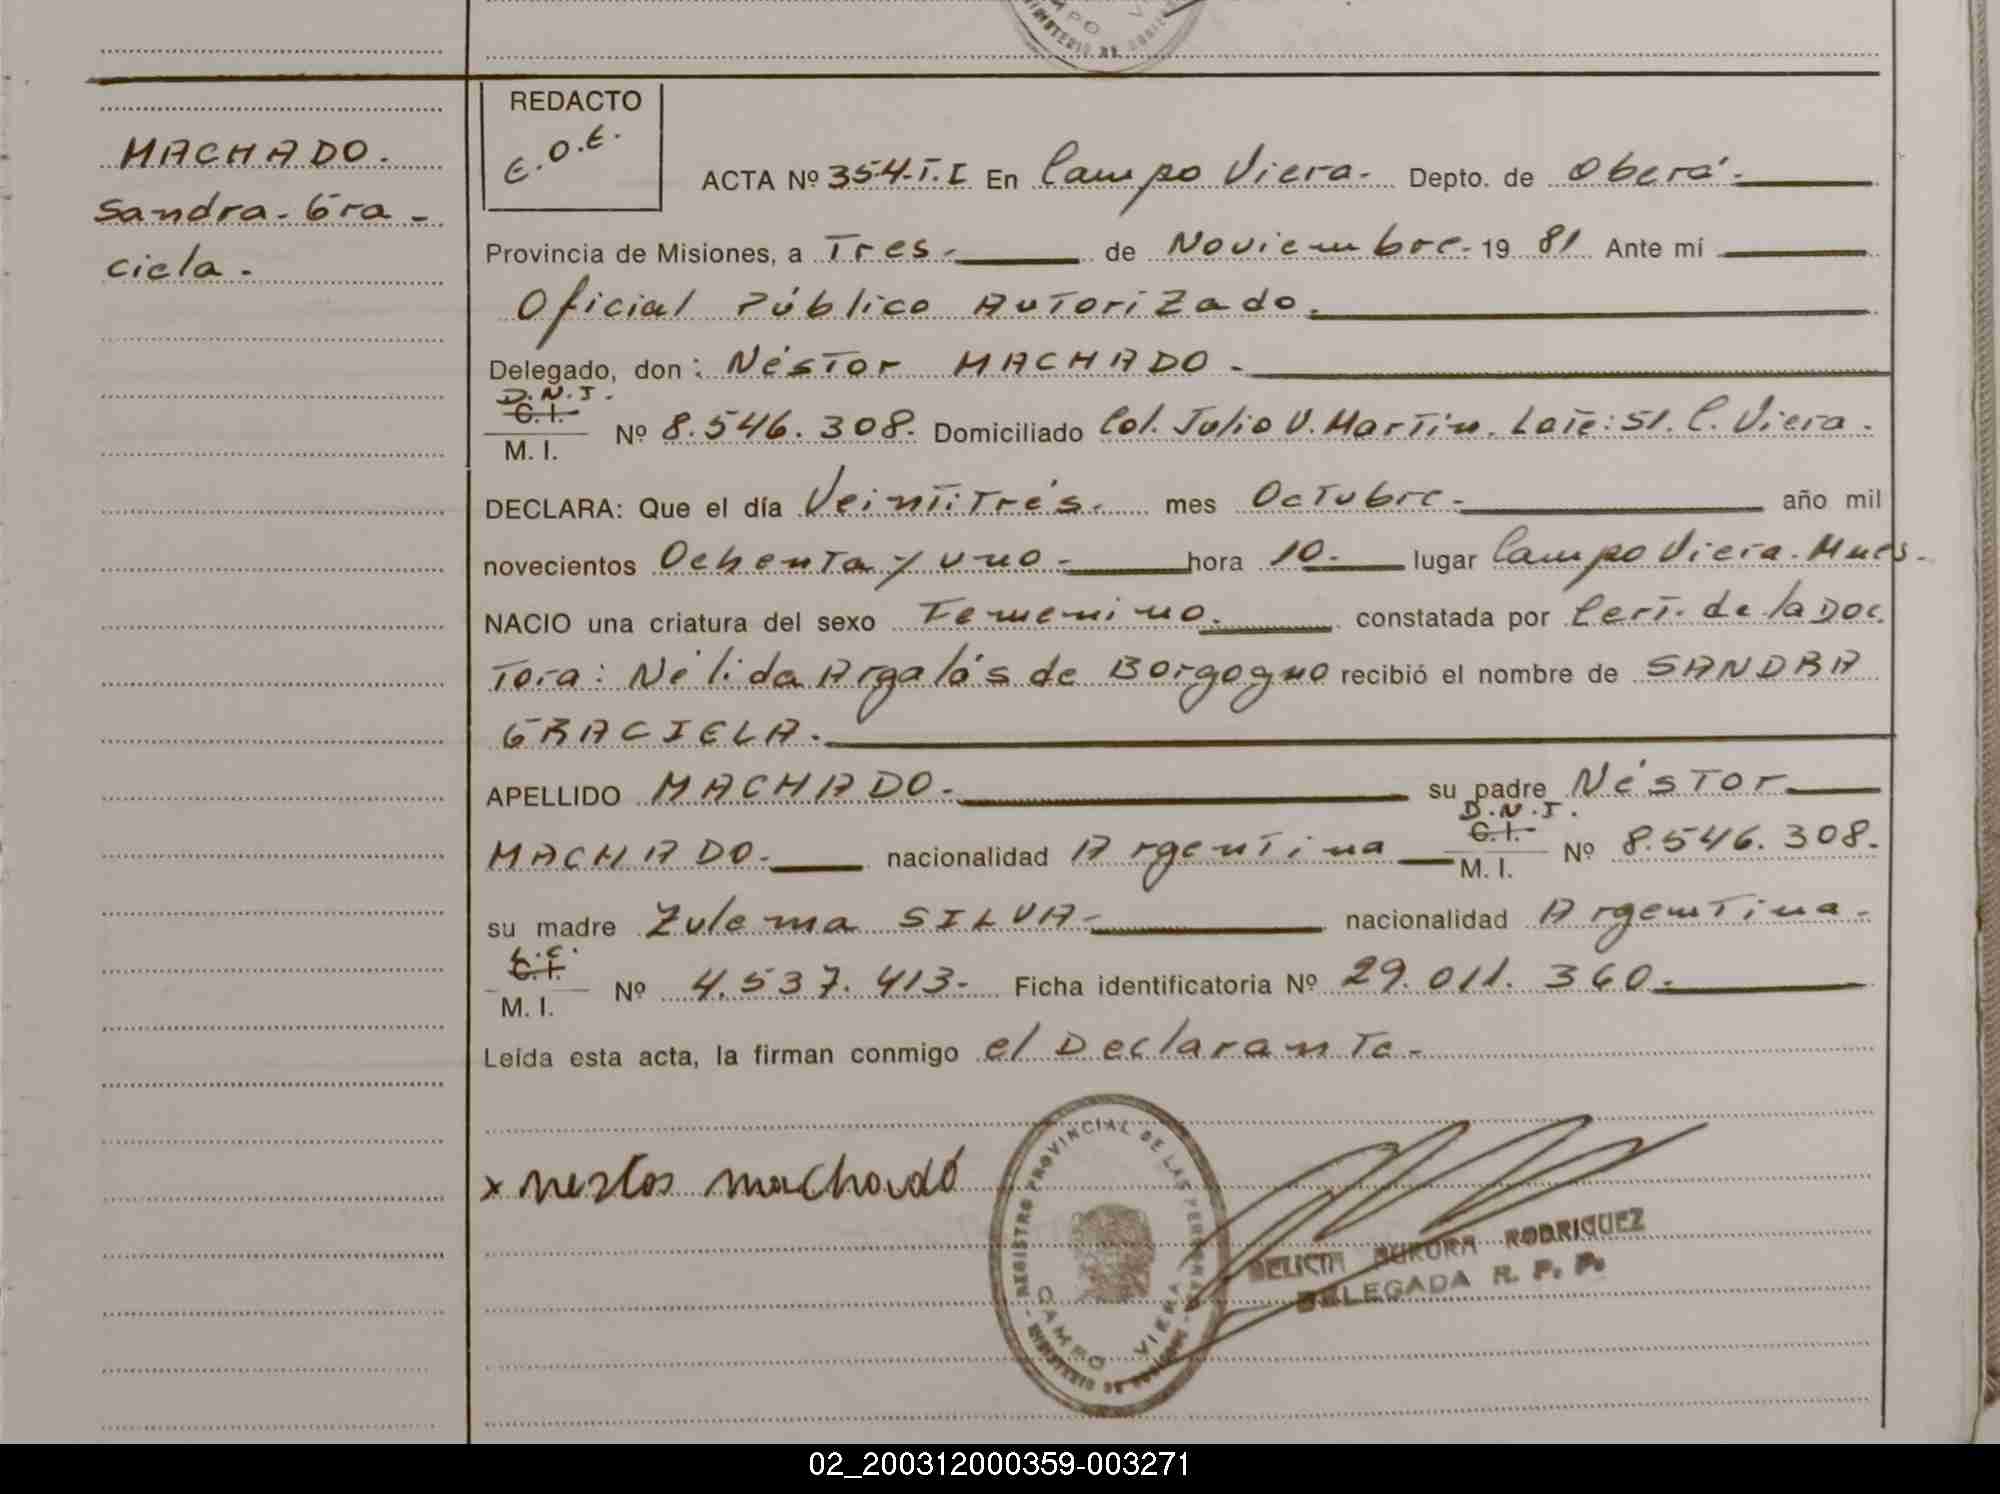 MACHADO.
Sandra-Gra-
ciela.
REDACTO
E.O.E.
ACTA Nº 354-T.I En Campo Viera.- Depto. de Oberá.-
Provincia de Misiones, a Tres.- de Noviembre.- 19 81. Ante mí
Oficial Público Autorizado.
Delegado, don: Néstor MACHADO.-
D.N.I.
C.I.
M. I.
Nº 8.546.308. Domiciliado Col. Julio U. Martin. Lote: 51. C. Viera.
DECLARA: Que el día Veintitrés. mes Octubre.- año mil
novecientos Ochenta y uno.- hora 10.- lugar Campo Viera. Mnes.-
NACIO una criatura del sexo Femenino. constatada por Cert. de la Doc.
Tora: Nélida Argalás de Borgogno recibió el nombre de SANDRA
GRACIELA.
APELLIDO MACHADO.- su padre Néstor
MACHADO.- nacionalidad Argentina
D.N.I.
C.I.
M. I.
Nº 8.546.308.
su madre Zulema SILVA- nacionalidad Argentina.-
L.C.
C.I.
M. I.
Nº 4.537.413- Ficha identificatoria Nº 29.011.360.-
Leída esta acta, la firman conmigo el Declarante.-
x nestos machado
REGISTRO PROVINCIAL DE LAS PERSONAS
CAMPO VIERA
MINISTERIO DE GOBIERNO
AURORA RODRIGUEZ
DELEGADA R. P. P.
02_200312000359-003271